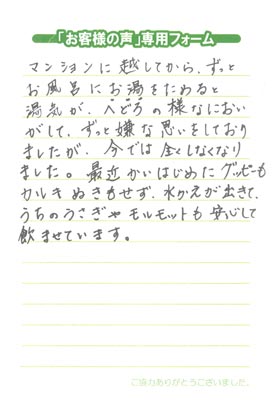 「お客様の声」専用フォーム
マンションに越してから、ずっと
お風呂にお湯をためると
湯気が、へどろの様なにおい
がして、ずっと嫌な思いをしており
ましたが、今では全くしなくなり
ました。最近かいはじめたグッピーも
カルキぬきもせず、水かえが出きて、
うちのうさぎやモルモットも安心して
飲ませています。
ご協力ありがとうございました。